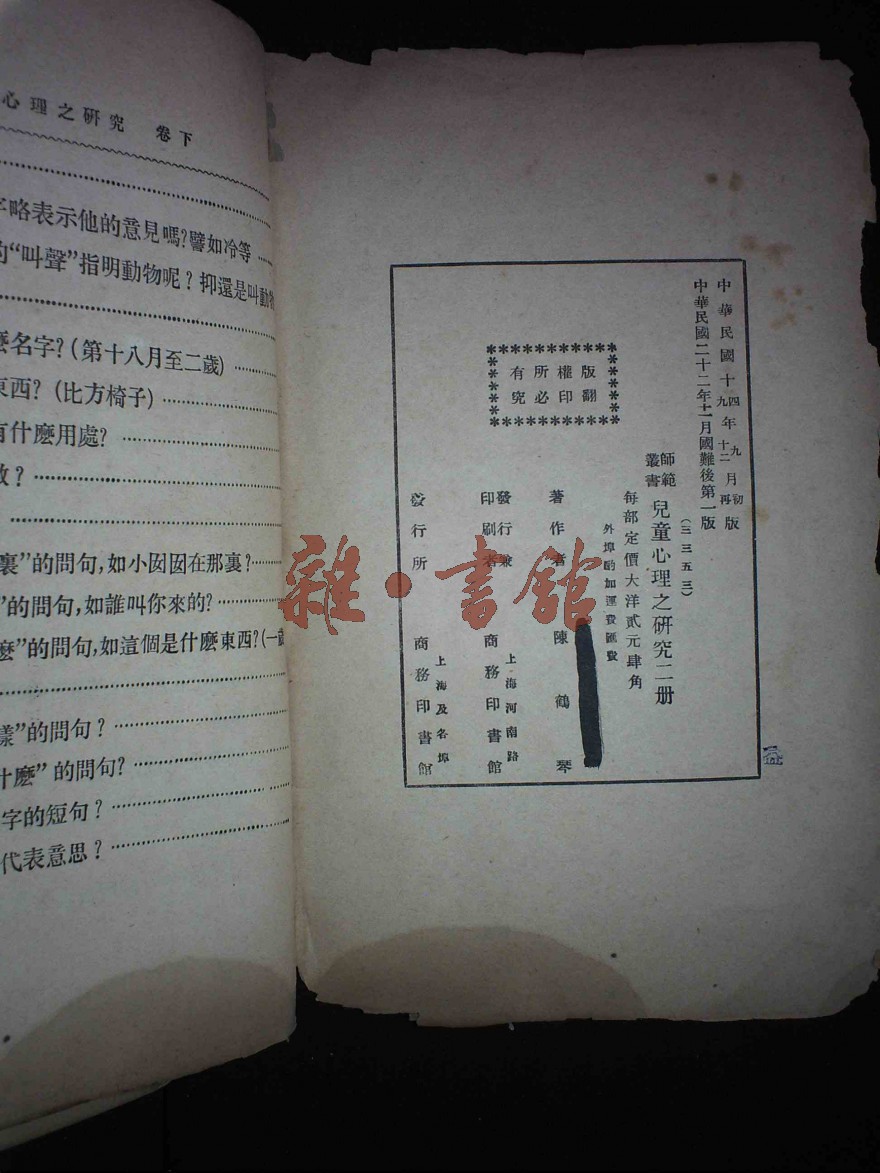 心理之研究 卷下
字略表示他的意見嗎?譬如冷等
的“叫聲”指明動物呢?抑還是叫動物
麽名字?(第十八月至二歲)
東西?(比方椅子)
有什麽用處?
裏”的問句,如小囡囡在那裏?
”的問句,如誰叫你來的?
麽”的問句,如這個是什麽東西?(一歲
樣”的問句?
什麽”的問句?
字的短句?
代表意思?
中華民國十四年九月初版
九 十二 再
中華民國二十二年十一月國難後第一版
(三三五三)
師範叢書 兒童心理之研究二册
每部定價大洋貳元肆角
外埠酌加運費匯費
版權所有
翻印必究
著作者 陳鶴琴
發行兼印刷者 上海河南路 商務印書館
發行所 上海及各埠 商務印書館
雜·書館